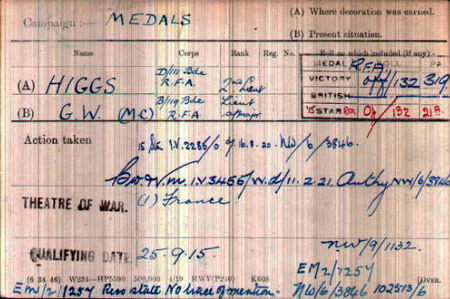 Campaign :— MEDALS
(A) Where decoration was earned.
(B) Present situation.
Name Corps Rank Reg. No. Roll on which included (if any).
MEDAL R.F.A.
(A) HIGGS D/111 Bde R.F.A. 2nd Lieut
VICTORY off/132 319
BRITISH
(B) G.W. (M.C) B/119 Bde R.F.A. Lieut
15 STAR RFA Of/132 21B.
Action taken 15 Star I.V.2286/0 of 16.8.20. NW/6/3846.
I.V.3455/W. d/11.2.21. Authy NW/6/3846
THEATRE OF WAR. (1) France.
QUALIFYING DATE 25.9.15.
NW/9/1132.
(6 34 46) W234—HP5590 500,000 4/19 HWV(P240) K608
EM2/7257
EM/2/7257 state No trace of mention. NW/6/3846 102513/6